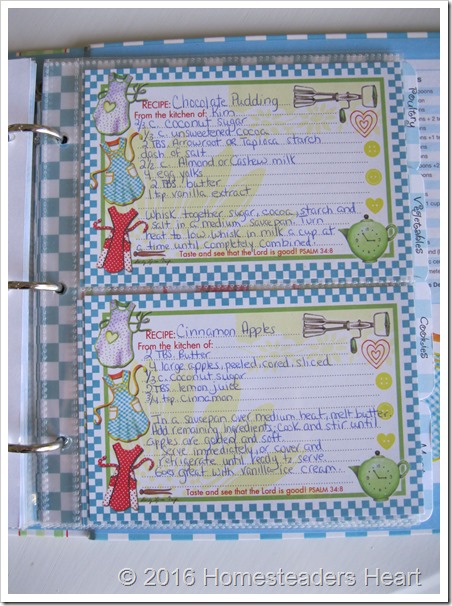 RECIPE: Chocolate Pudding
From the kitchen of: Kim
2/3 c. Coconut sugar
c. unsweetened cocoa
2 TBS. Arrowroot or Tapioca starch
dash of salt
c. Almond or Cashew milk
4 egg yolks
2 TBS. butter
1 tsp vanilla extract
Whisk together sugar, cocoa, starch and
salt in a medium saucepan. Turn
heat to low. Whisk in milk a cup at
a time until completely combined.
Taste and see that the Lord is good! PSALM 34:8
RECIPE: Cinnamon Apples
From the kitchen of:
2 TBS. Butter
4 large apples, peeled, cored, sliced
c. Coconut sugar
2 TBS. lemon juice
3/4 tsp. Cinnamon
In a saucepan over medium heat, melt butter.
Add remaining ingredients. Cook and stir until
apples are golden and soft.
Serve immediately, or cover and
refrigerate until ready to serve.
Goes great with vanilla ice cream.
Taste and see that the Lord is good! PSALM 34:8
Poultry
Vegetables
Cookies
© 2016 Homesteaders Heart